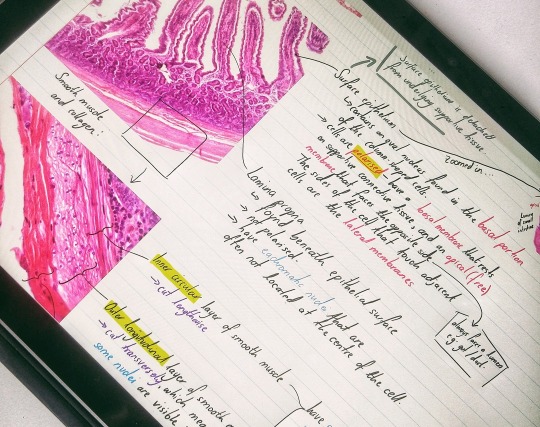 Surface epithelium is detached
from underlying supportive tissue
Surface epithelium
↳ contains an oval nucleus found in the basal portion
of the column-shaped cells.
→ cells are polarised - have a basal membrane that rests
on supportive connective tissue, and an apical (free)
membrane that faces the opposite side.
The sides of the cell that touch adjacent
cells are the lateral membranes
zoomed in...
always faces a lumen
e.g. gut / duct
Smooth muscle
and collagen:
Lamina propria
↳ found beneath epithelial surface
→ not polarised.
→ have euchromatic nuclei that are
often not located at the centre of the cell.
Inner circular layer of smooth muscle
→ cut lengthwise
Outer longitudinal layer of smooth
→ cut transversely, which
some nuclei are visible
have